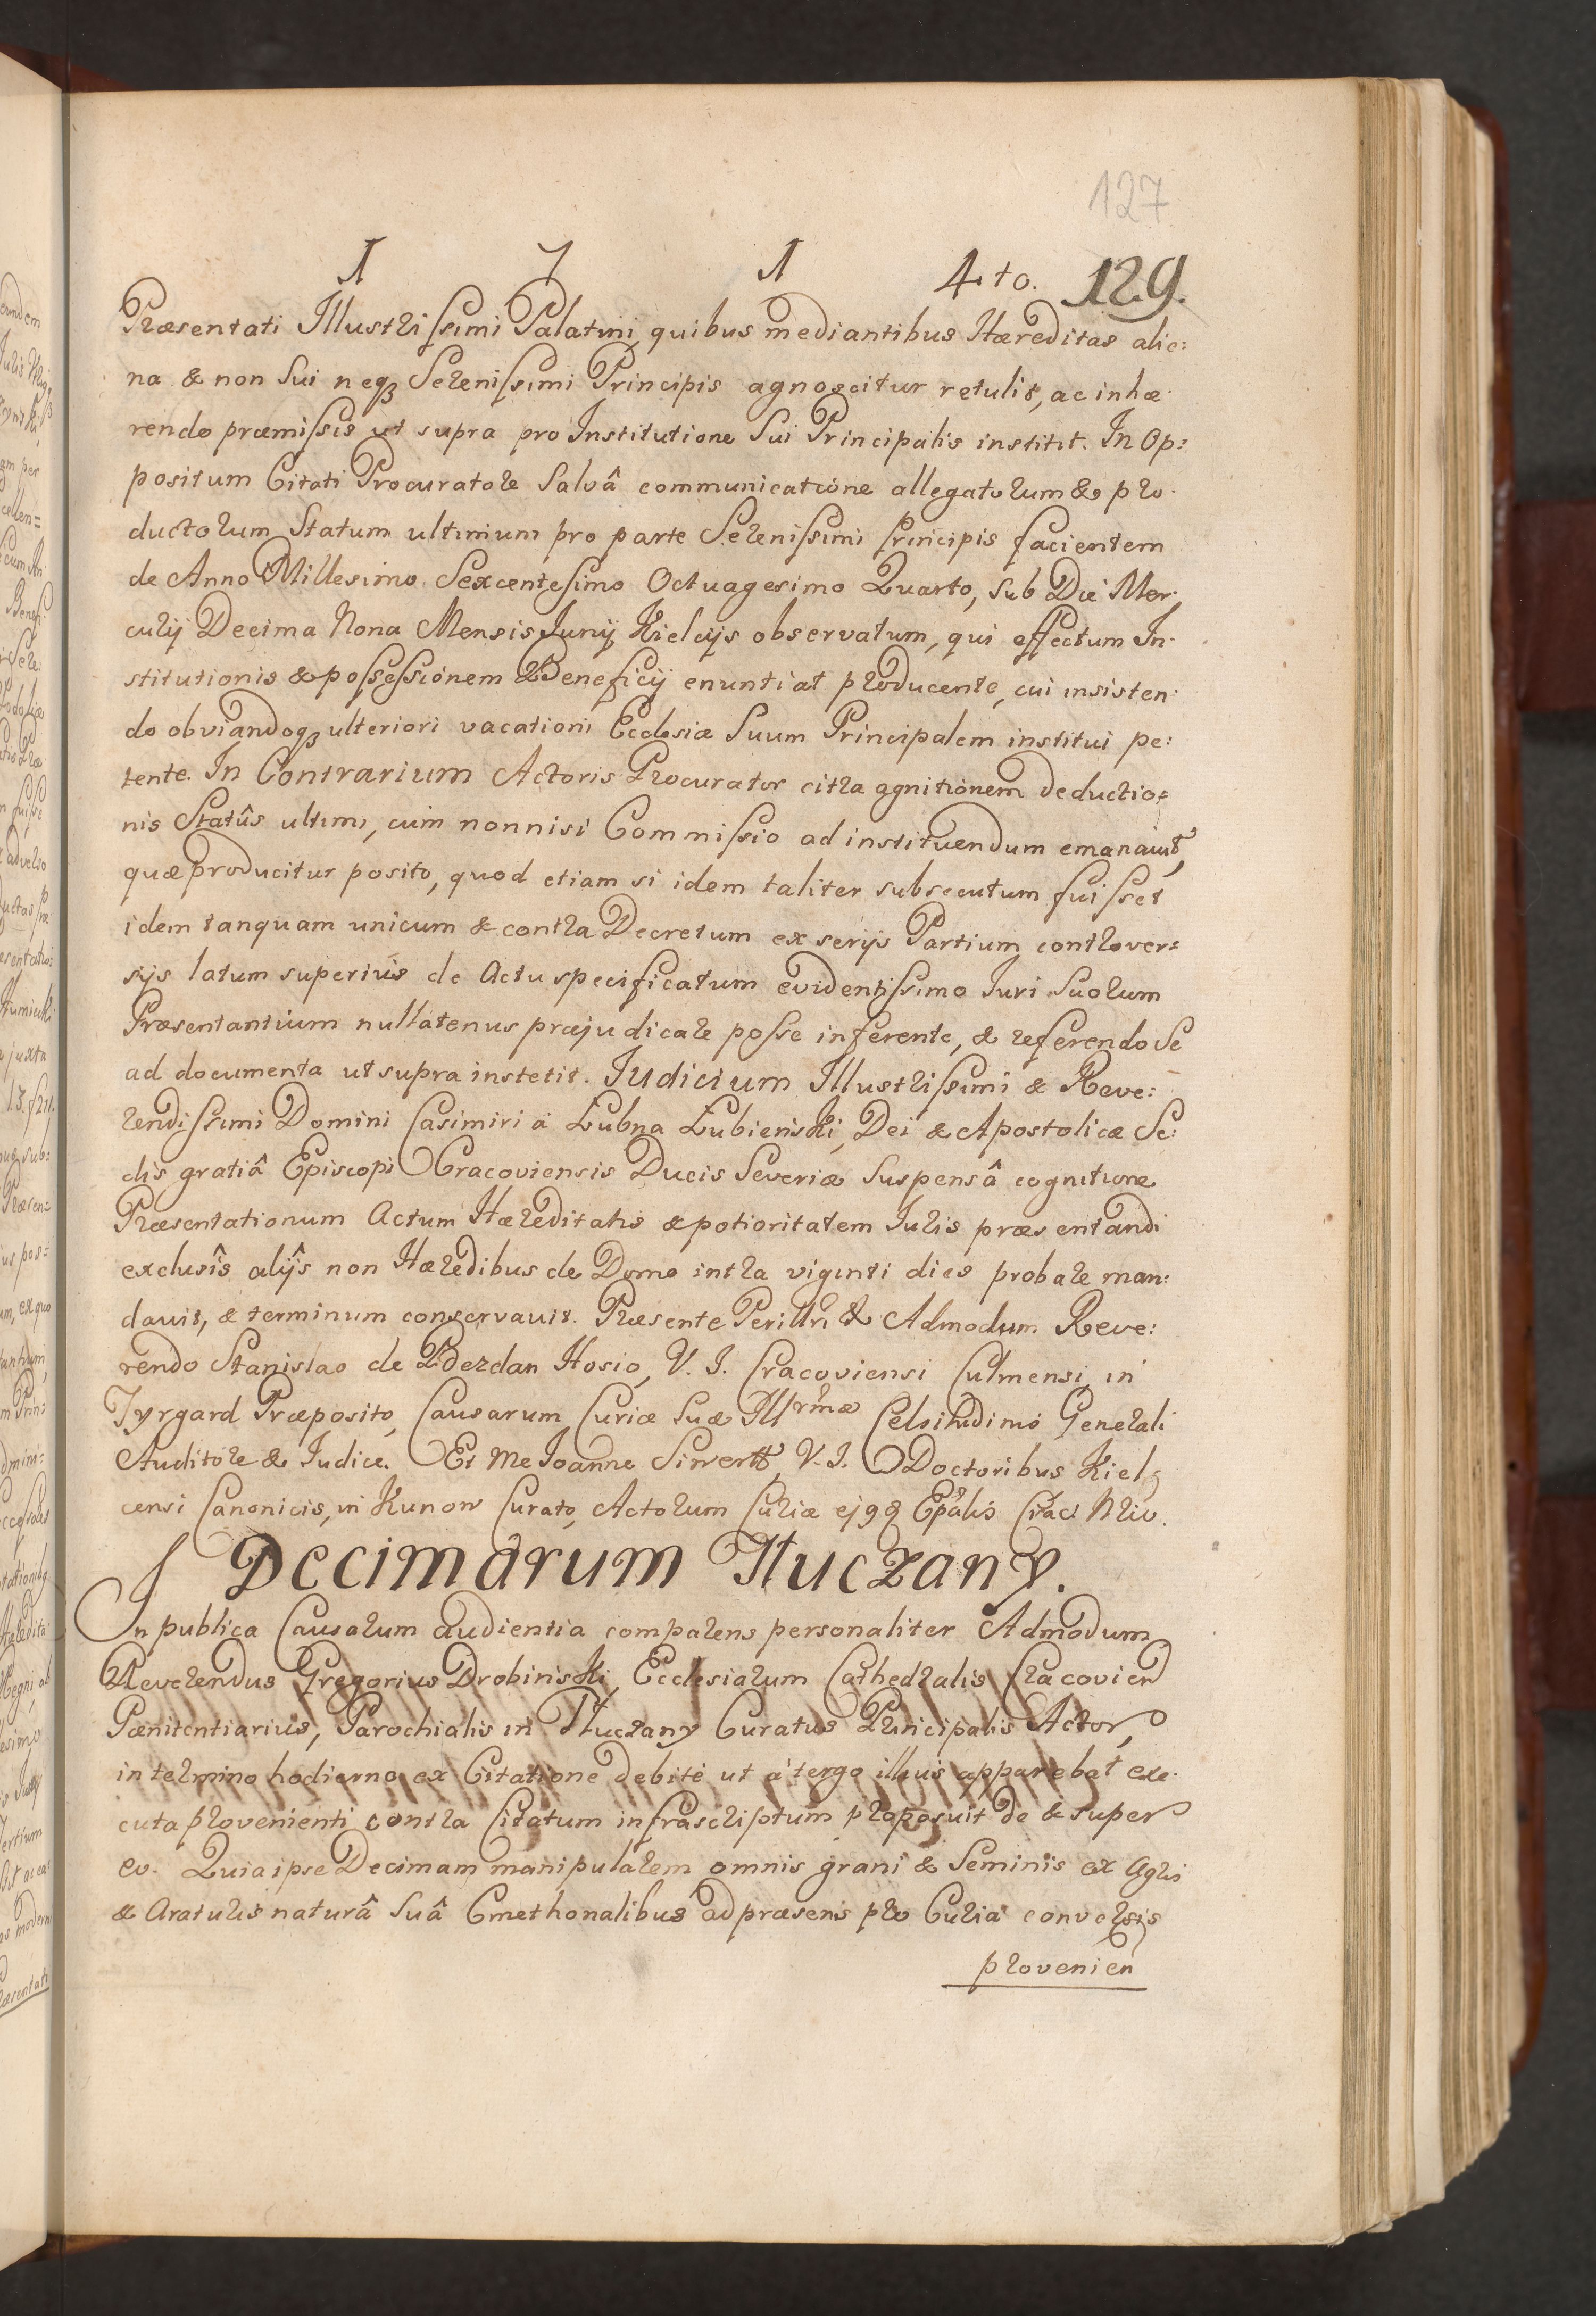 127
1 7 1 4to. 129.
Præsentati Illustrissimi Palatini, quibus mediantibus Hæreditas alie:
na & non Sui neq3 Serenissimi Principis agnoscitur retulit, ac inhæ
rendo præmissis ut supra pro Institutione Sui Principalis institit. In Op:
positum Citati Procuratore Salvâ communicatione allegatorum & pro
ductorum Statum ultimum pro parte Serenissimi Principis facientem
de Anno Millesimo Sexcentesimo Octuagesimo Quarto, sub Die Mer
curij Decima Nona Mensis Junij Kielcijs observatum, qui effectum In
stitutionis & possessionem Beneficij enuntiat producente, cui insisten
do obviandoq3 ulteriori vacationi Ecclesiæ Suum Principalem institui pe:
tente. In Contrarium Actoris Procurator citra agnitionem deductio:
nis Statûs ultimi, cum nonnisi Commissio ad instituendum emanavit,
quæ producitur posito, quod etiam si idem taliter subsecutum fuisset
idem tanquam unicum & contra Decretum ex serijs Partium controver:
sijs latum superius de Actu specificatum evidentissimo Juri Suorum
Præsentantium nullatenus præjudicare posse inferente, & referendo Se
ad documenta ut supra institit. Judicium Illustrissimi & Reve:
rendissimi Domini Casimiri à Łubna Łubieński, Dei & Apostolicæ Se:
dis gratiâ Episcopi Cracoviensis Ducis Severiæ Suspensâ cognitione
Præsentationum Actum Hæreditatis & potioritatem Juris præsentandi
exclusîs alijs non Hæredibus de Domo intra viginti dies probare man:
davit, & terminum conservavit. Præsente Perilłri & Admodum Reve:
rendo Stanislao de Bezdan Hosio, V. J. Cracoviensi Culmensi, in
Tyrgard Præposito, Causarum Curiæ Suæ Illrmæ Celsitudinis Generali
Auditore & Judice. Et me Joanne Siwertt, V. J. Doctoribus Kiel
censi Canonicis, in Kunow Curato, Actorum Curiæ ejq9 Epalis Crac: Nrio.
Decimarum Tłuczany.
In publica Causarum audientia comparens personaliter Admodum
Reverendus Gregorius Drobiński, Ecclesiarum Cathedralis Cracovien
Pænitentiarius, Parochialis in Tłuczany Curatus Principalis Actor,
in termino hodierno ex Citatione debitè ut à tergo illius apparebat exe
cuta provenienti contra Citatum infrascriptum proposuit de & super
eo. Quia ipse Decimam manipularem omnis grani & Seminis ex Agris
& Araturis naturâ Suâ Cmethonalibus ad præsens pro Curia conversis
provenien